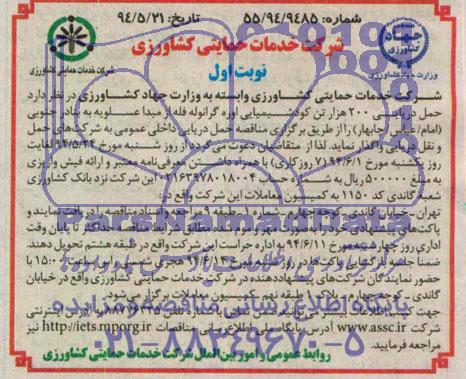 شماره: ۵۵/۹۴/۹۴۸۵
تاریخ: ۹۴/۵/۲۱
جهاد کشاورزی
وزارت جهاد کشاورزی
شرکت خدمات حمایتی کشاورزی
شرکت خدمات حمایتی کشاورزی
نوبت اول
شرکت خدمات حمایتی کشاورزی وابسته به وزارت جهاد کشاورزی در نظر دارد
حمل دریایی ۲۰۰ هزار تن کود شیمیایی اوره گرانوله فله از مبدا عسلویه به بنادر جنوبی
(امام/عباس/چابهار) را از طریق برگزاری مناقصه حمل دریایی داخلی عمومی به شرکت‌های حمل
و نقل دریایی واگذار نماید. لذا از متقاضیان دعوت می گردد از روز شنبه مورخ ۹۴/۵/۲۴ لغایت
روز یکشنبه مورخ ۹۴/۶/۱ (۷ روز کاری) با همراه داشتن معرفی‌نامه معتبر و ارائه فیش واریزی
به مبلغ ۵۰۰۰۰۰ ریال به شماره حساب این شرکت نزد بانک کشاورزی
شعبه گاندی کد ۱۱۵۰ به کمیسیون معاملات این شرکت واقع در:
تهران - خیابان گاندی - کوچه چهارم - شماره ۱ - طبقه ۹ مراجعه و اسناد مناقصه را دریافت نمایند و
پاکت‌های پیشنهادی خود را به صورت مهر و موم شده مطابق شرایط مناقصه حداکثر تا پایان وقت
اداری روز چهارشنبه مورخ ۹۴/۶/۱۱ به اداره حراست این شرکت واقع در طبقه هشتم تحویل دهند.
ضمنا جلسه بازگشایی پاکت‌ها در روز شنبه مورخ هجری شمسی راس ساعت ۱۵:۰۰ با
حضور نمایندگان شرکت‌های پیشنهاددهنده در شرکت خدمات حمایتی کشاورزی واقع در خیابان
گاندی - کوچه چهارم - پلاک ۱ - طبقه نهم - کمیسیون معاملات برگزار می‌شود.
جهت کسب اطلاعات بیشتر به آدرس اینترنتی
شرکت www.assc.ir آدرس پایگاه ملی اطلاع رسانی مناقصات http://iets.mporg.ir نیز
مراجعه فرمایید.
روابط عمومی و امور بین الملل شرکت خدمات حمایتی کشاورزی
پایگاه اطلاع رسانی مناقصه مزایده
۰۲۱-۸۸۳۴۹۶۷۰-۵